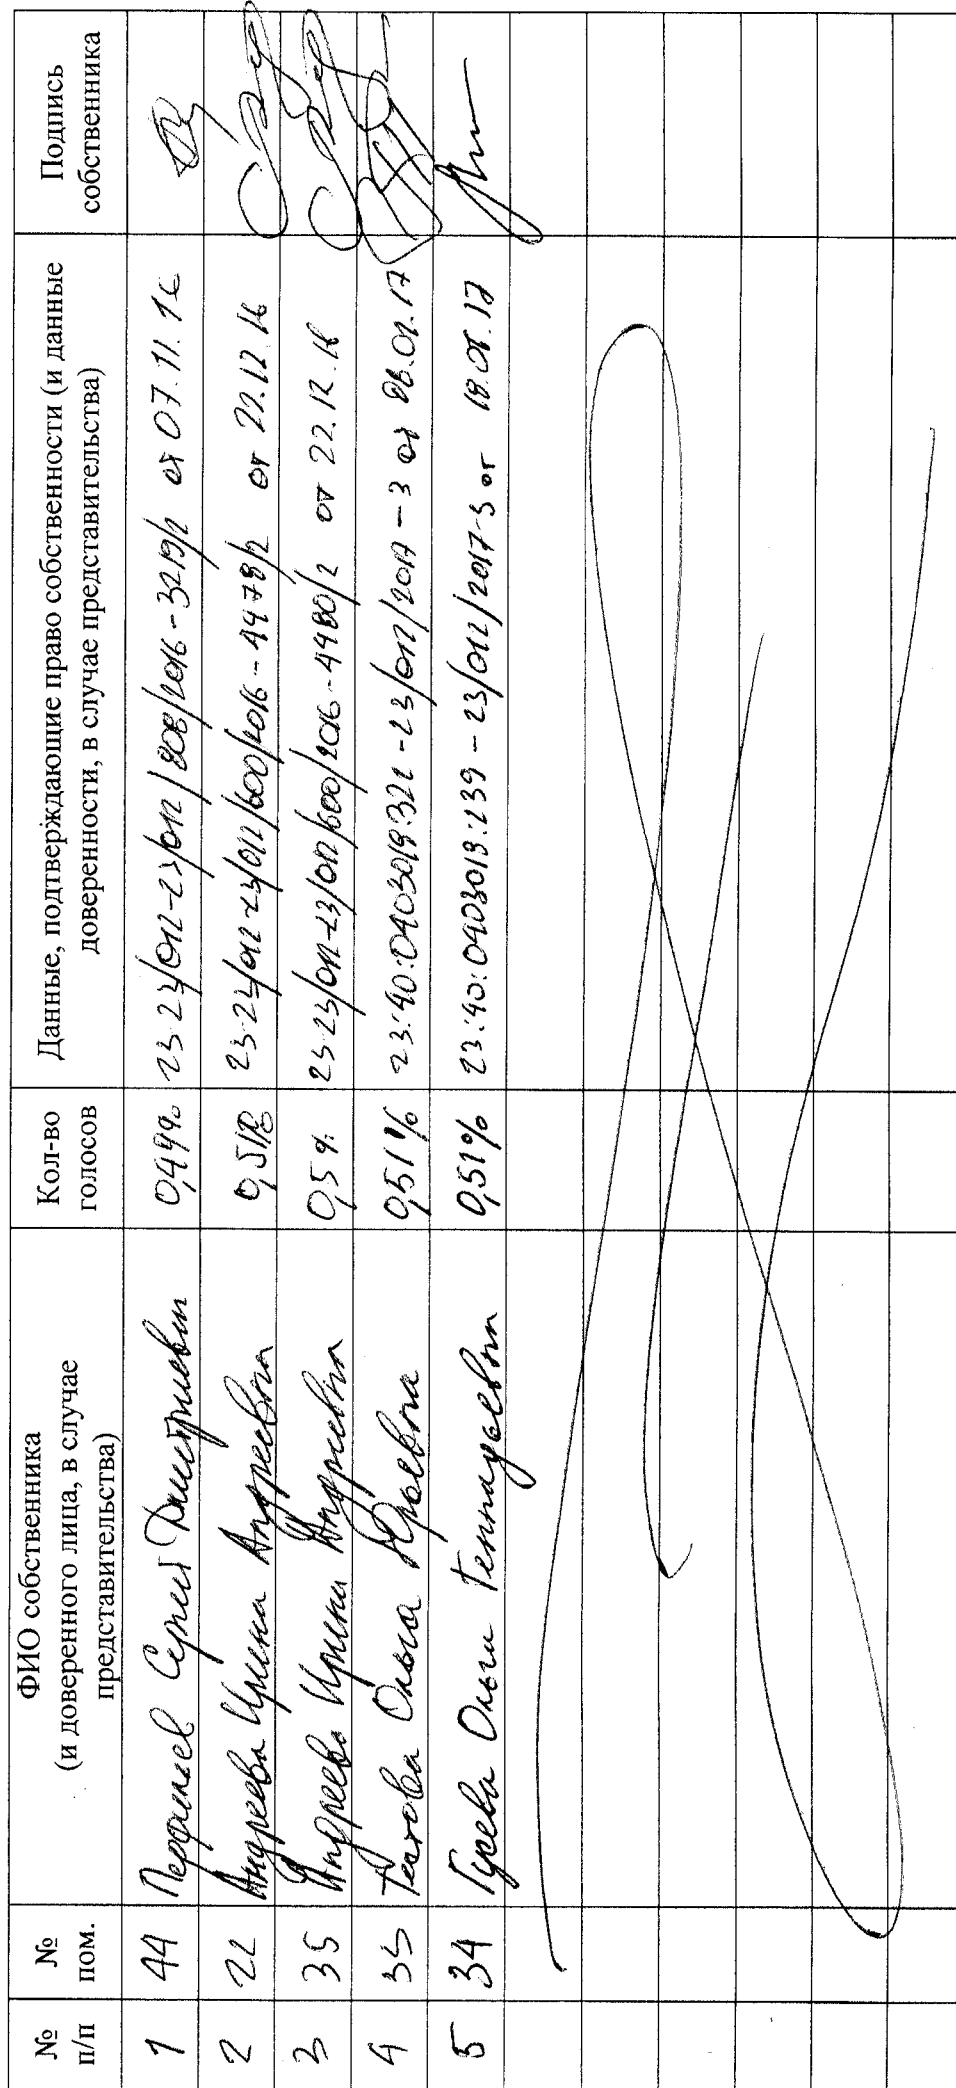 № п/п
№ пом.
ФИО собственника
(и доверенного лица, в случае
представительства)
Кол-во
голосов
Данные, подтверждающие право собственности (и данные
доверенности, в случае представительства)
Подпись
собственника
1 44 Сергей Дмитриевич 0,49% 23-23/012-23/012/808/2016-3219/2 от 07.11.16
2 22 Андреева Ирина Андреевна 0,51% 23-23/012-23/012/600/2016-4478/2 от 22.12.16
3 35 Андреева Ирина Андреевна 0,5% 23-23/012-23/012/600/2016-4480/2 от 22.12.16
4 33 Ольга Юрьевна 0,51% 23:40:0403019:321-23/012/2017-3 от
5 34 Гусева Ольга Геннадьевна 0,51% 23:40:0403013:239-23/012/2017-3 от